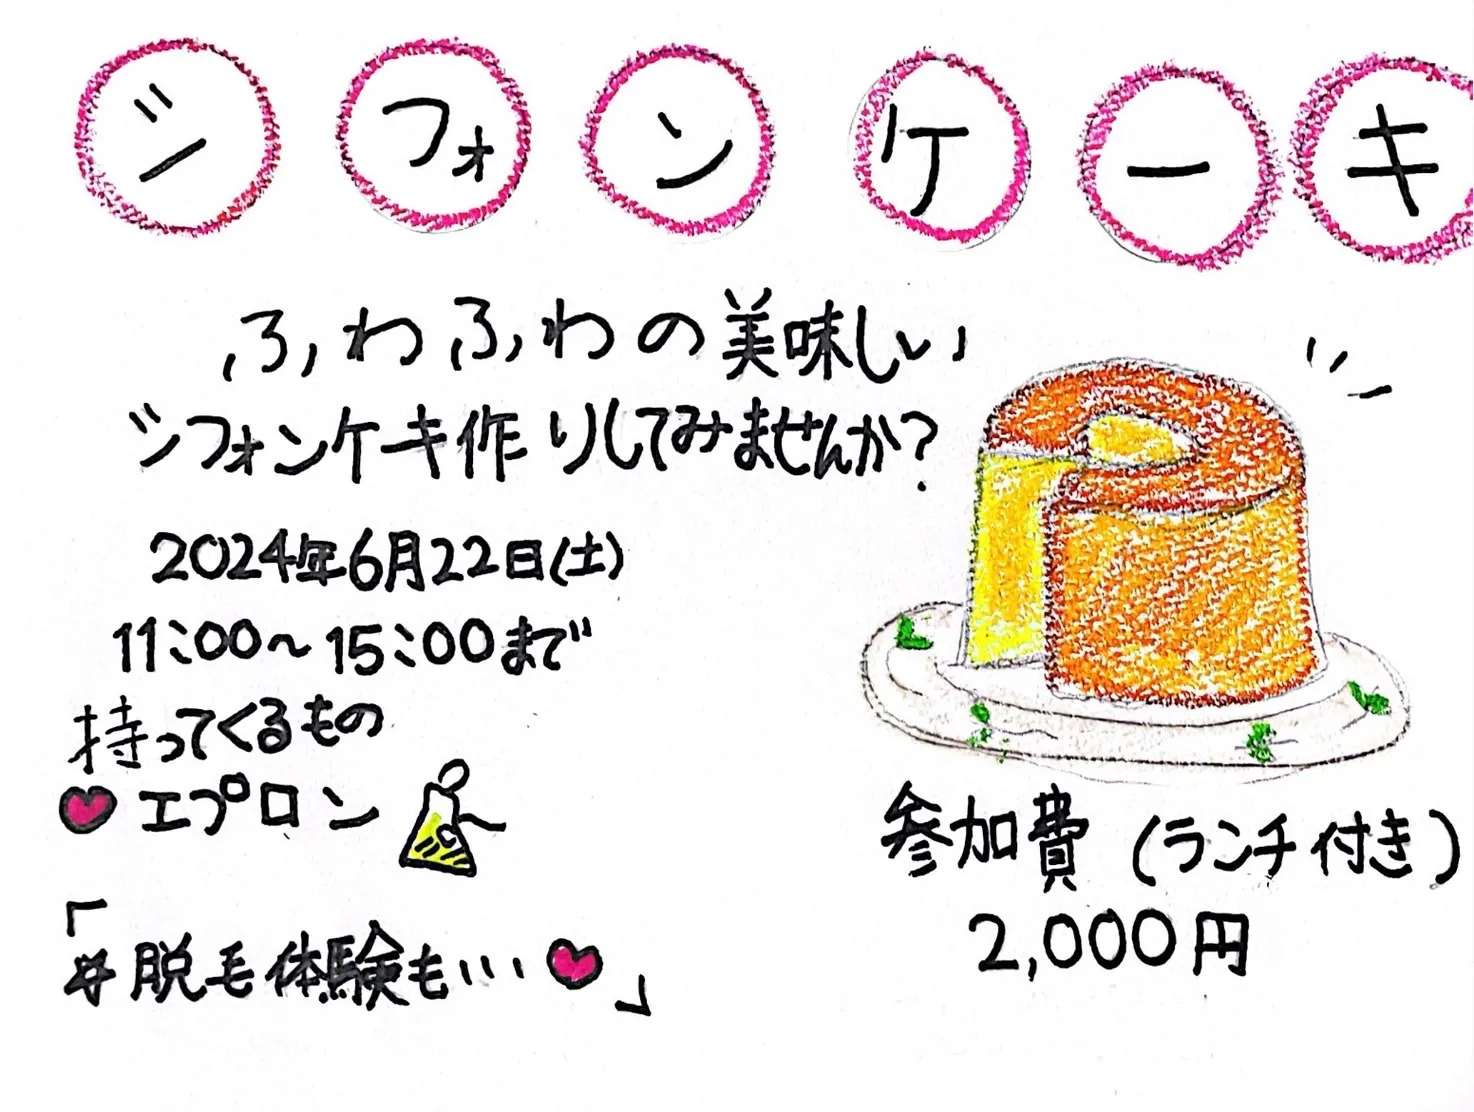 シフォンケーキ
ふわふわの美味しい
シフォンケーキ作りしてみませんか?
2024年6月22日(土)
11:00〜15:00まで
持ってくるもの
♥エプロン
「
#脱毛体験も…♥」
参加費(ランチ付き)
2,000円